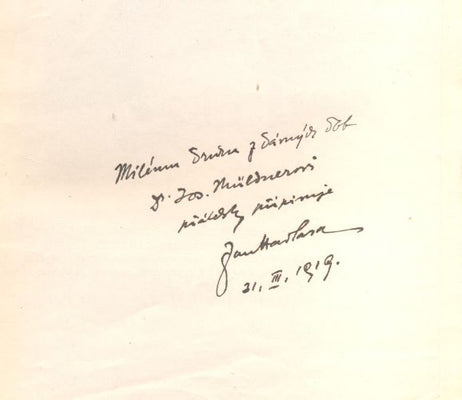 Milému druhu z dávných dob
Dr Jos. Müldnerovi
přátelsky připisuje
Jan Havlasa
31. III. 1919.